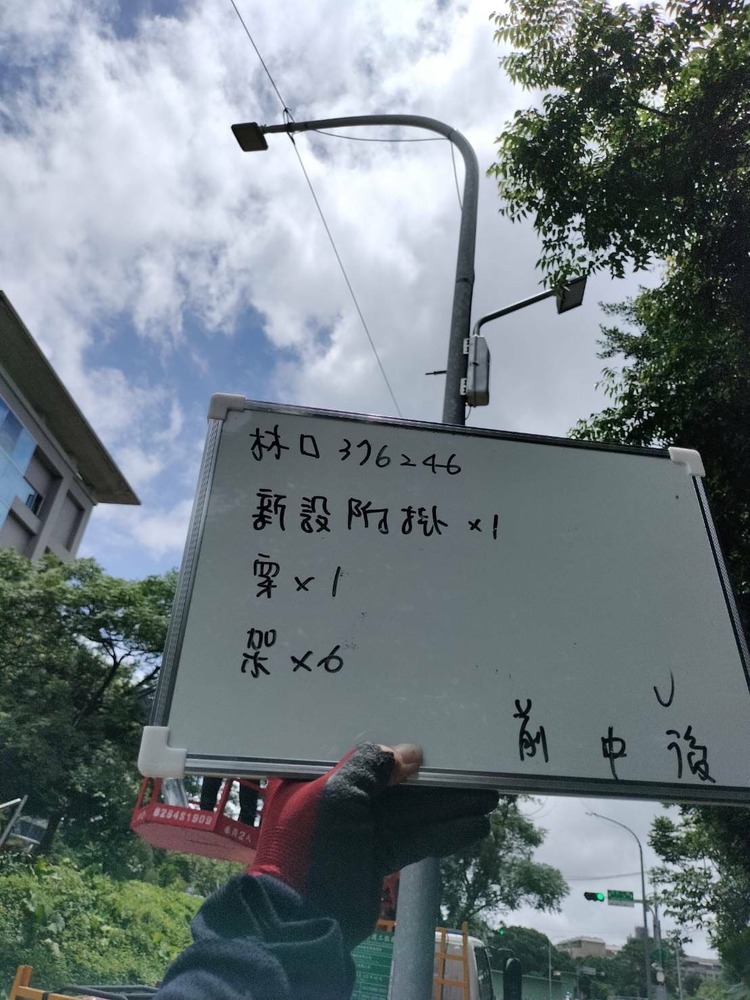 林口 376246
新設附掛 ×1
架 ×6
前 中 後